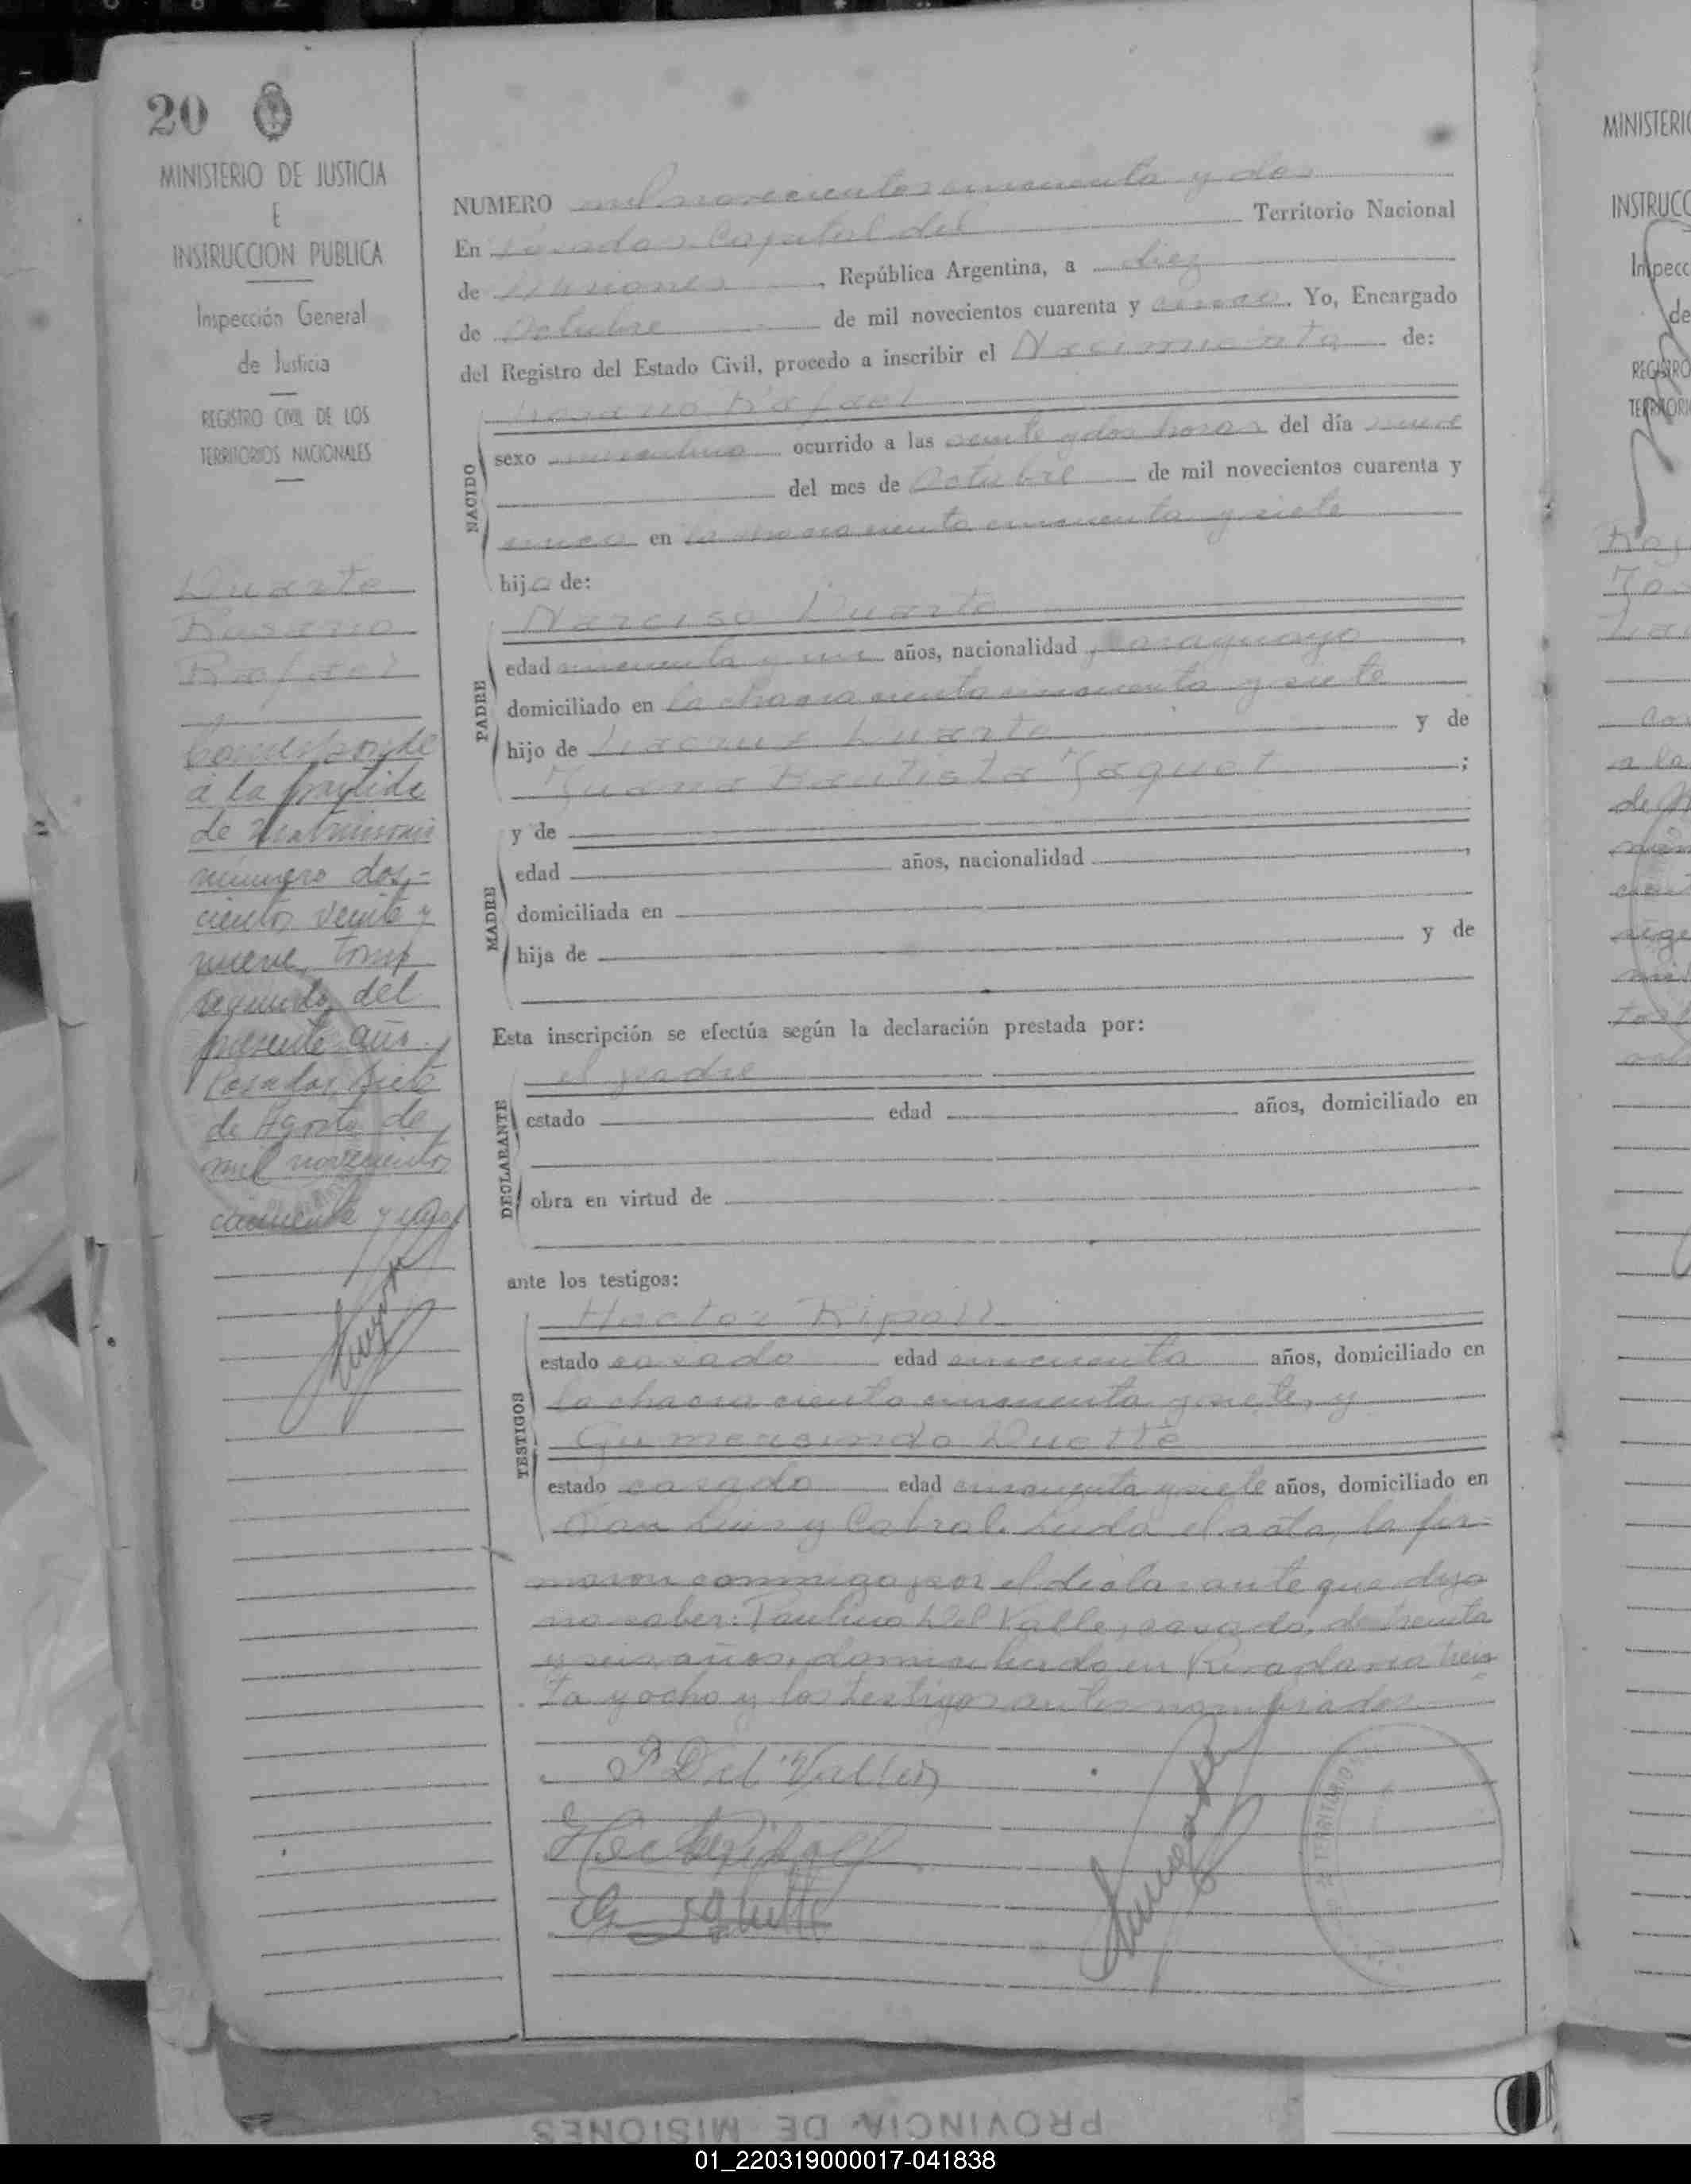 20
MINISTERIO DE JUSTICIA
E
INSTRUCCION PUBLICA
Inspección General
de Justicia
REGISTRO CIVIL DE LOS
TERRITORIOS NACIONALES
Duarte
Rosario
Rafael
Corresponde
a la partida
de Matrimonio
número dos-
cientos veinte y
nueve, tomo
segundo, del
presente año.
Posadas, siete
de Agosto de
mil novecientos
cincuenta y
NUMERO mil novecientos cincuenta y dos
En Posadas Capital del Territorio Nacional
de Misiones, República Argentina, a diez
de Octubre de mil novecientos cuarenta y cinco. Yo, Encargado
del Registro del Estado Civil, procedo a inscribir el Nacimiento de:
Rosario Rafael
NACIDO
sexo masculino ocurrido a las veinte y dos horas del día nueve
del mes de Octubre de mil novecientos cuarenta y
cinco en la chacra ciento cincuenta y siete
hijo de:
Narciso Duarte
PADRE
edad cincuenta y un años, nacionalidad paraguayo,
domiciliado en la chacra ciento cincuenta y siete
hijo de Duarte y de
Juana Bautista Jaquet;
y de
MADRE
edad años, nacionalidad ,
domiciliada en
hija de y de
Esta inscripción se efectúa según la declaración prestada por:
el padre
DECLARANTE
estado edad años, domiciliado en
obra en virtud de
ante los testigos:
Hector Ripoll
TESTIGOS
estado casado edad cincuenta años, domiciliado en
la chacra ciento cincuenta y siete, y
Gumersindo Duette
estado casado edad cincuenta y siete años, domiciliado en
San Luis y Cabral. Leída el acta, la fir-
maron conmigo por el declarante que dijo
no saber: Paulino Del Valle, casado, de treinta
y seis años, domiciliado en Rivadavia trein
ta y ocho y los testigos antes nombrados
P Del Valle
Hector Ripoll
TERRITORIO
MINISTERI
INSTRUCC
Inspecc
de
REGISTRO
TERRITORI
a la
PROVINCIA DE MISIONES
01_220319000017-041838